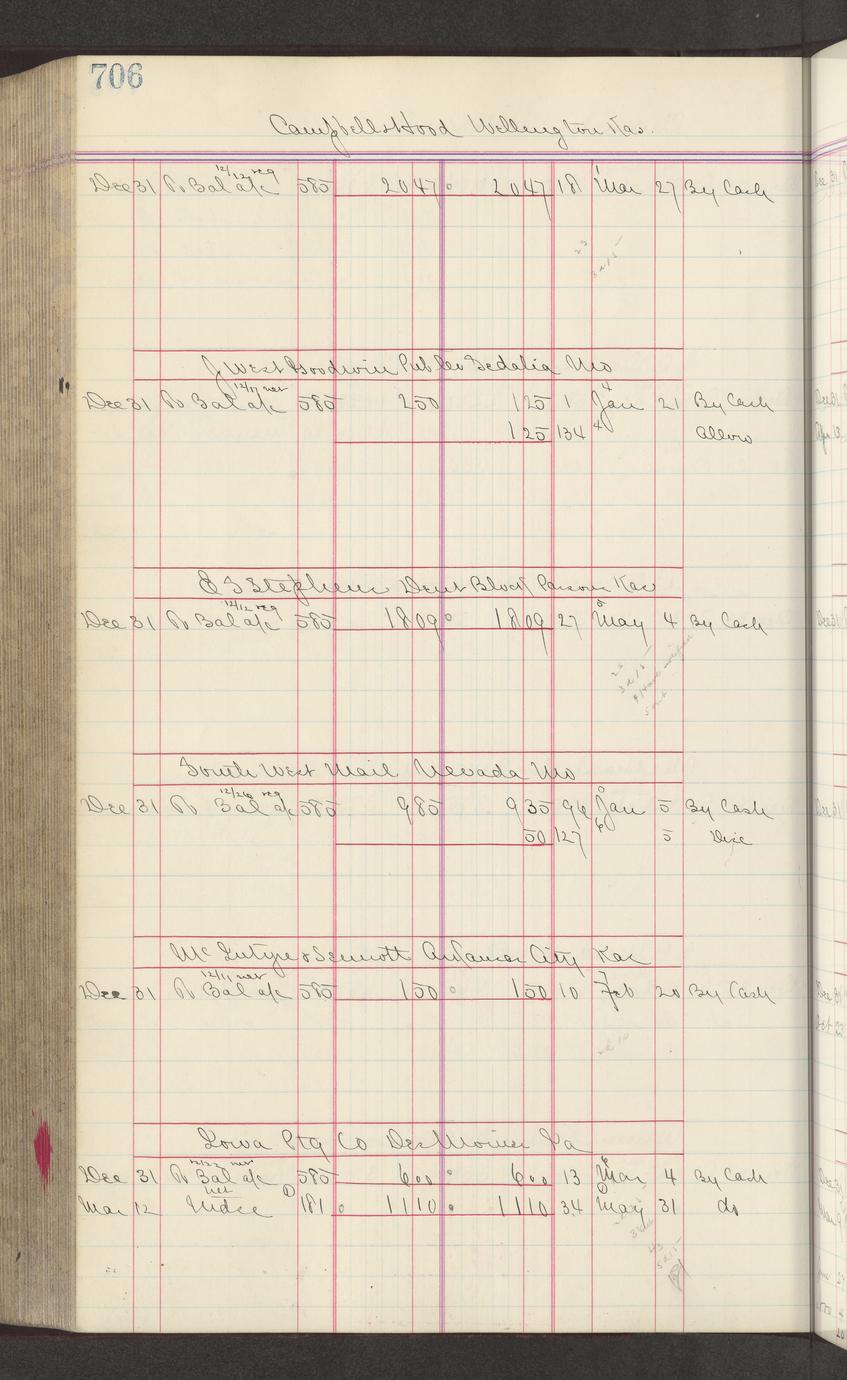 706
Campbell & Hood Wellington Kas.
12/12 reg
Dec 31 To Bal a/c 585 2047 2047 18 Mar 27 By Cash
J West Goodwin Pub Co Sedalia Mo
12/17 net
Dec 31 To Bal a/c 585 250 125 1 Jan 21 By Cash
125 134 Allow
E S Stephens Dent Block Parsons Kas
12/12 reg
Dec 31 To Bal a/c 585 1809 1809 27 May 4 By Cash
South West Mail Nevada Mo
12/26 reg
Dec 31 To Bal a/c 585 985 935 96 Jan 5 By Cash
50 127 5 Disc
McIntyre & Sennott Arkansas City Kas
12/11 net
Dec 31 To Bal a/c 585 150 150 10 Feb 20 By Cash
Iowa Ptg Co Des Moines Ia
12/22 net
Dec 31 To Bal a/c 585 600 600 13 Mar 4 By Cash
net
Mar 12 Mdse 181 1110 1110 34 May 31 do